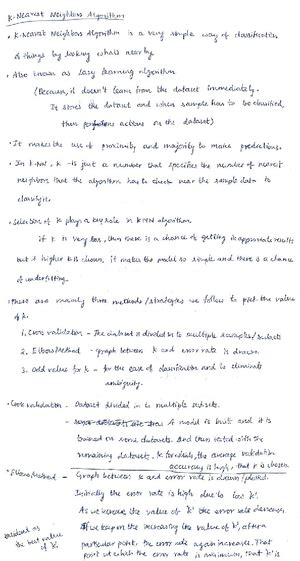 K-Nearest Neighbors Algorithm
• K-Nearest Neighbors Algorithm is a very simple way of classification
of things by looking what's near by.
• Also known as Lazy learning algorithm
(Because, it doesn't learn from the dataset immediately.
It stores the dataset and when sample has to be classified,
then performs actions on the dataset)
• It makes the use of proximity and majority to make predictions.
• In K-NN, K - is just a number that specifies the number of nearest
neighbors that the algorithm has to check near the sample data to
classify it.
• Selection of K plays a key role in KNN algorithm.
if K is very low, then there is a chance of getting approximate results
but if higher K is chosen, it makes the model so simple and there is a chance
of underfitting.
• There are mainly three methods/strategies we follow to pick the value
of K.
1. Cross validation - The dataset is divided in to multiple samples/subsets
2. Elbow Method - graph between K and error rate is drawn.
3. Odd value for K - for the ease of classification and to eliminate
ambiguity.
• Cross validation - Dataset divided in to multiple subsets.
- A model is built and it is
trained on some datasets. And then tested with the
remaining dataset. K for which, the average validation
accuracy is high, that K is chosen.
• Elbow Method - Graph between K and error rate is drawn/plotted.
Initially the error rate is high due to low 'K'.
As we increase the value of 'K' the error rate decreases,
If we keep on increasing the value of 'K', after a
particular point, the error rate again increases. That
point at which the error rate is minimum, that 'K' is
as
the best value
of 'K'.